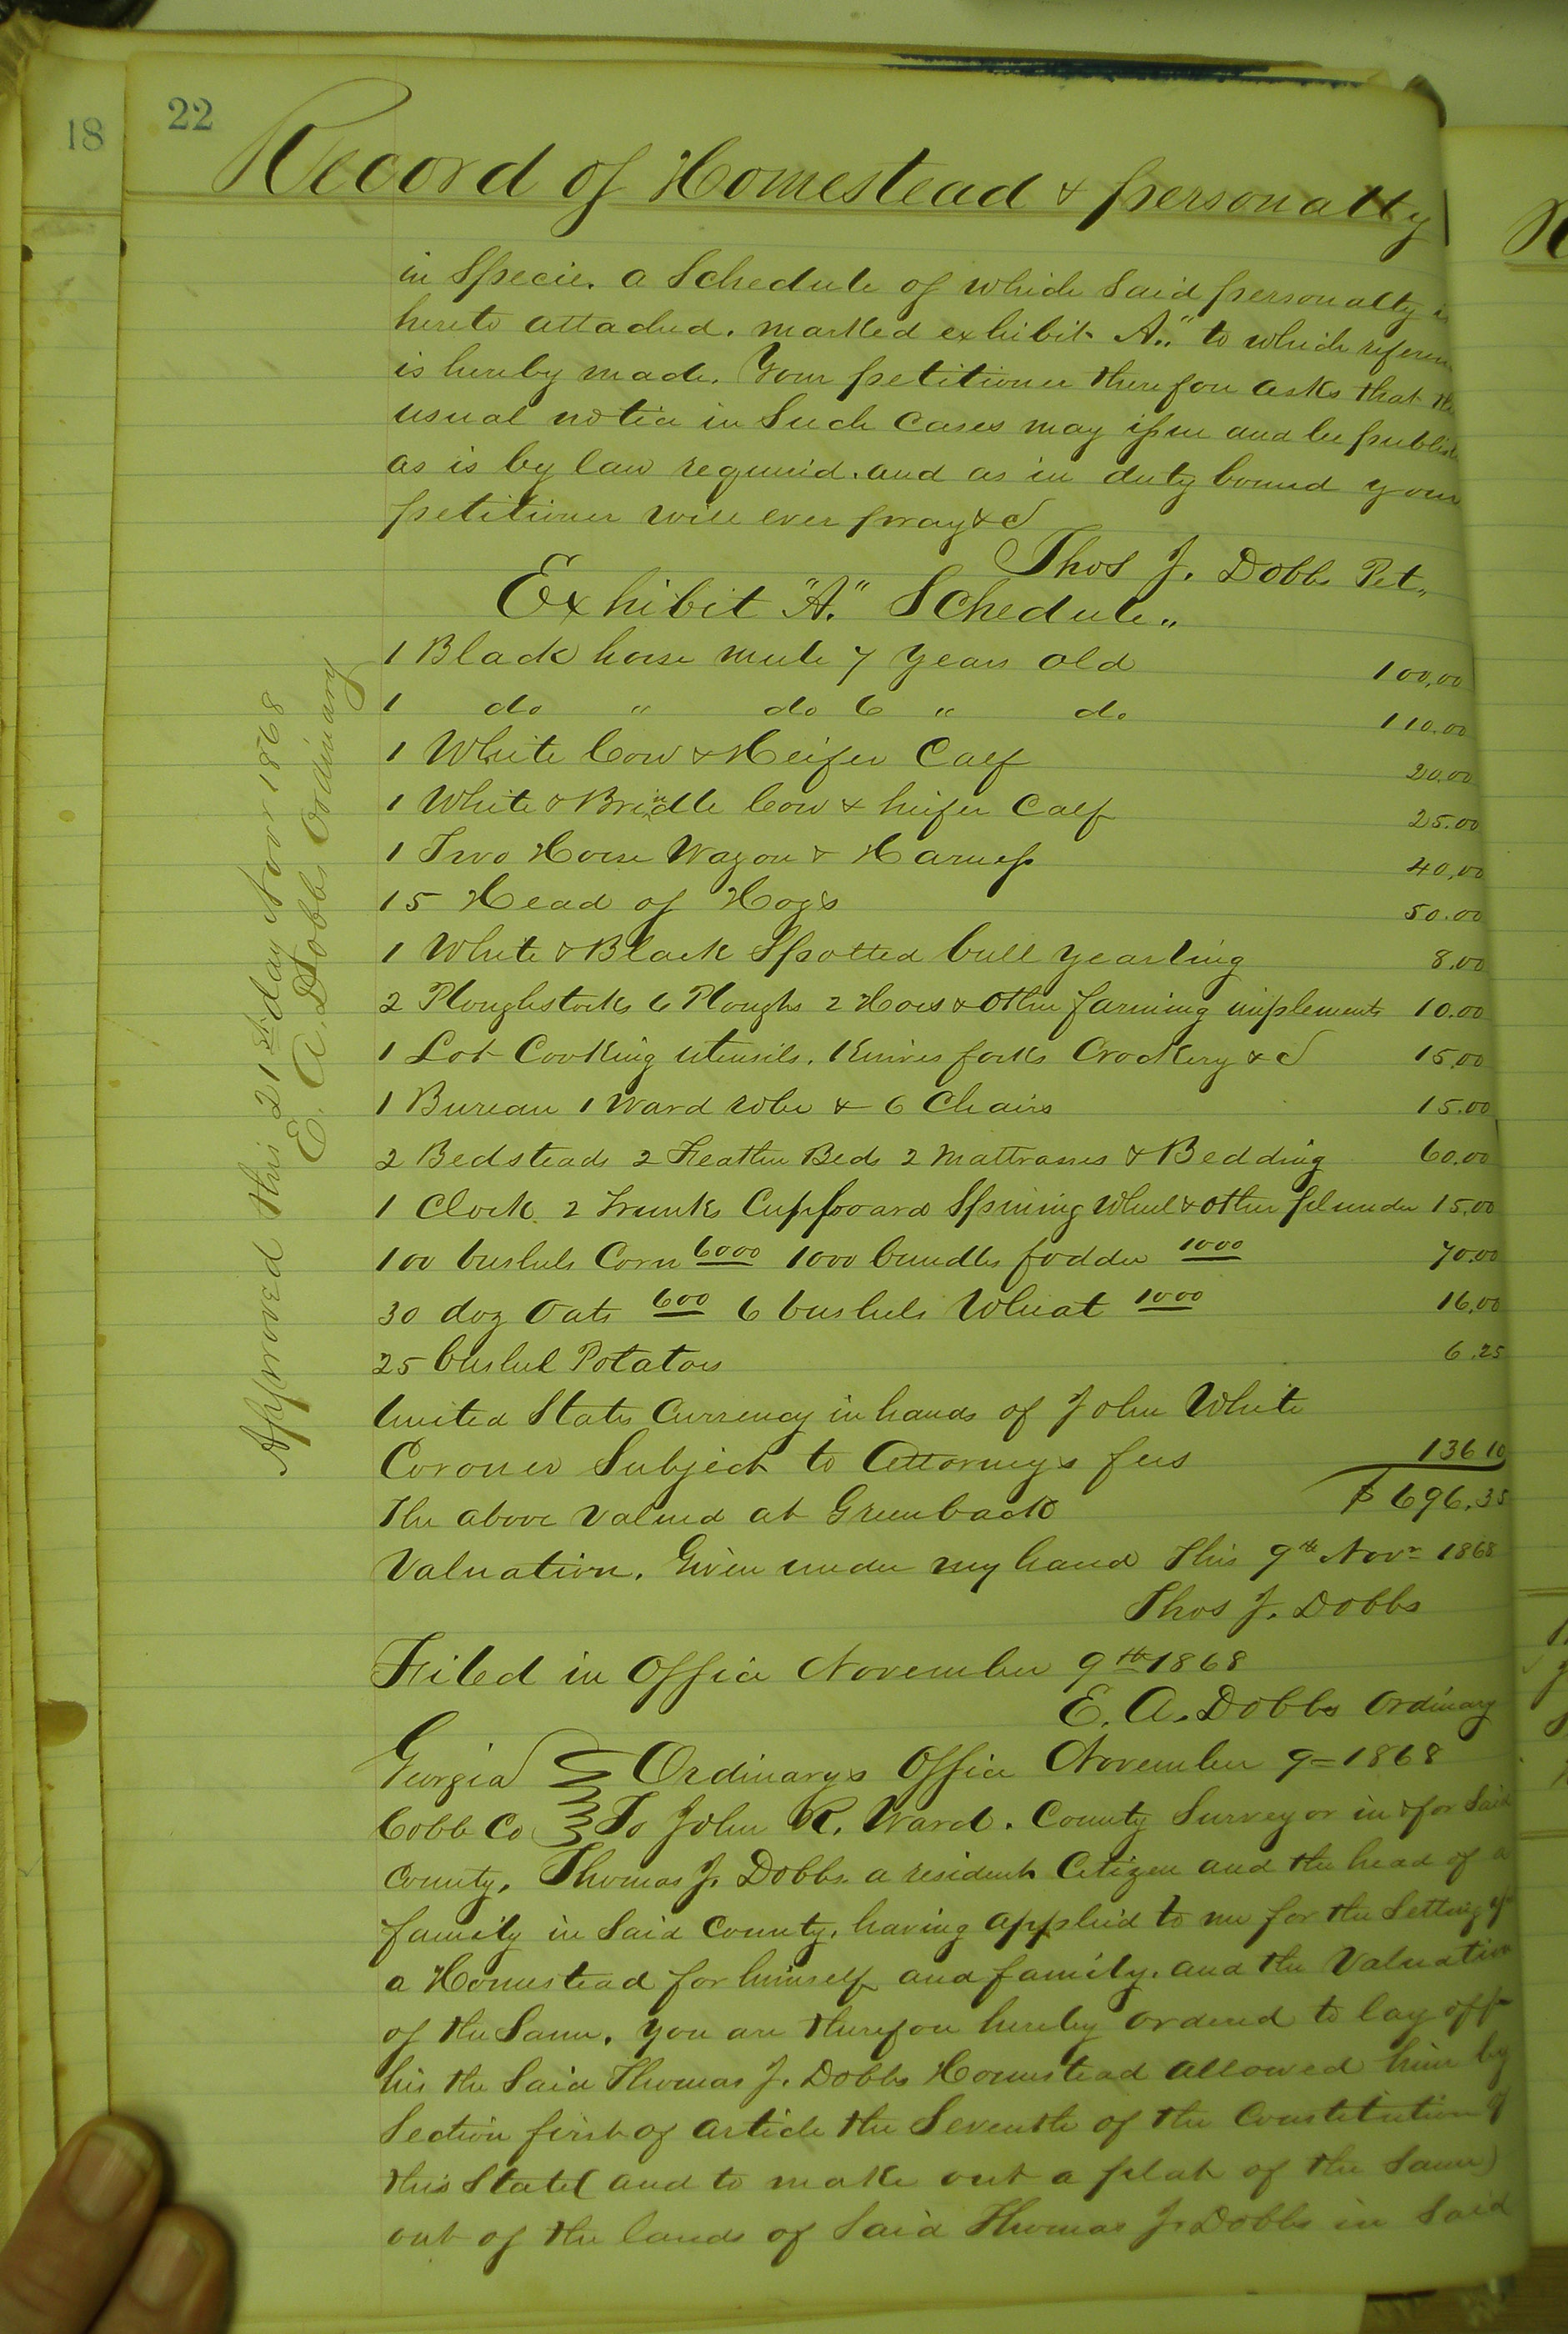 18
22
Record of Homestead & personalty
in Specie. a Schedule of which said personalty is
hereto attached. marked exhibit A.." to which referen
is hereby made. Your petitioner therefore asks that the
usual notice in Such Cases may issue and be publish
as is by law required. and as in duty bound your
petitioner will ever pray &c
Thos J. Dobbs Pet.,
Exhibit "A." Schedule..
1 Black horse mule 7 years old 100.00
1 do " do 6 " do 110.00
1 White Cow & Heifer Calf 20.00
1 White & Brindle Cow & heifer Calf 25.00
1 Two Horse Wagon & Harness 40.00
15 Head of Hogs 50.00
1 White & Black Spotted bull yearling 8.00
2 Ploughstocks 6 Ploughs 2 Hoes & Other farming implements 10.00
1 Lot Cooking utensils. Knives forks Crockery &c 15.00
1 Bureau 1 Ward robe & 6 Chairs 15.00
2 Bedsteads 2 Feather Beds 2 Mattrasses & Bedding 60.00
1 Clock 2 Trunks Cupboard Spining Wheel & other plunder 15.00
100 bushels Corn 6000 1000 bundles fodder 1000 70.00
30 doz Oats 600 6 bushels Wheat 1000 16.00
25 bushel Potatoes 6.25
United States Currency in hands of John White
Coroner Subject to Attorneys fees 136 10
The above valued at Greenback $ 696.35
Valuation. Given under my hand This 9th Novr 1868
Thos J. Dobbs
Filed in Office November 9th 1868
E. A. Dobbs Ordinary
Georgia Ordinarys Office November 9= 1868
Cobb Co To John R. Ward. County Surveyor in & for Said
County, Thomas J. Dobbs a resident Citizen and the head of a
family in Said County, having applied to me for the Setting of
a Homestead for himself and family. and the Valuation
of the Same. you are therefore hereby ordered to lay off
his the Said Thomas J. Dobbs Homestead allowed him by
Section first of article the Seventh of the Constitution of
this State (and to make out a plat of the Same)
out of the lands of Said Thomas J. Dobbs in Said
Approved this 21st day Novr 1868
E. A. Dobbs Ordinary